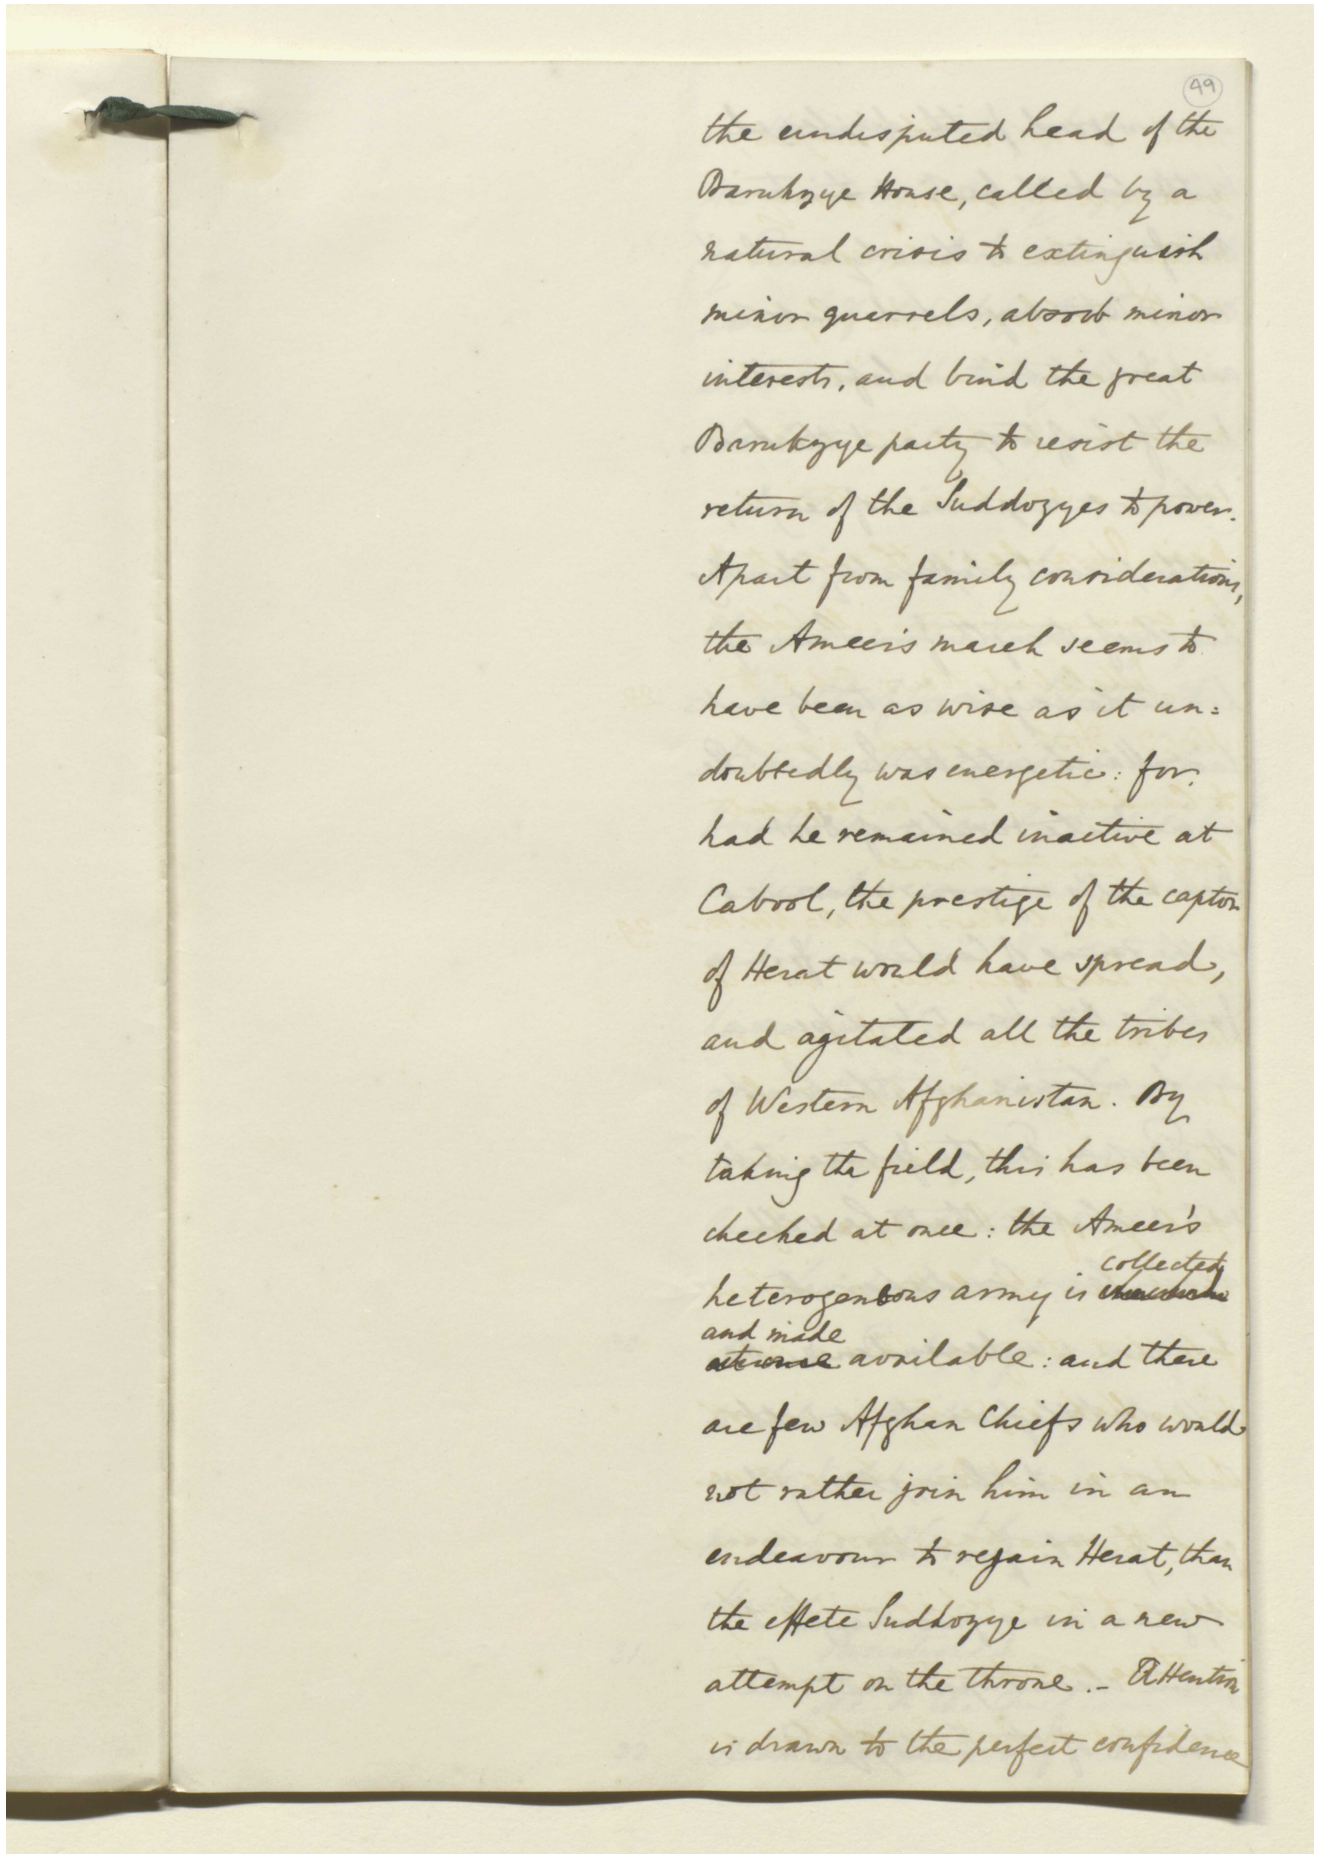 49
the undisputed head of the
Barukzye House, called by a
natural crisis to extinguish
minor quarrels, absorb minor
interests, and bind the great
Barukzye party to resist the
return of the Suddozyes to power.
Apart from family considerations,
the Ameer's march seems to
have been as wise as it un=
doubtedly was energetic: for,
had he remained inactive at
Cabool, the prestige of the captor
of Herat would have spread,
and agitated all the tribes
of Western Afghanistan. By
taking the field, this has been
checked at once: the Ameer's
collected
heterogeneous army is
and made
at once available: and there
are few Afghan Chiefs who would
not rather join him in an
endeavour to regain Herat, than
the effete Suddozye in a new
attempt on the throne. - Attention
is drawn to the perfect confidence